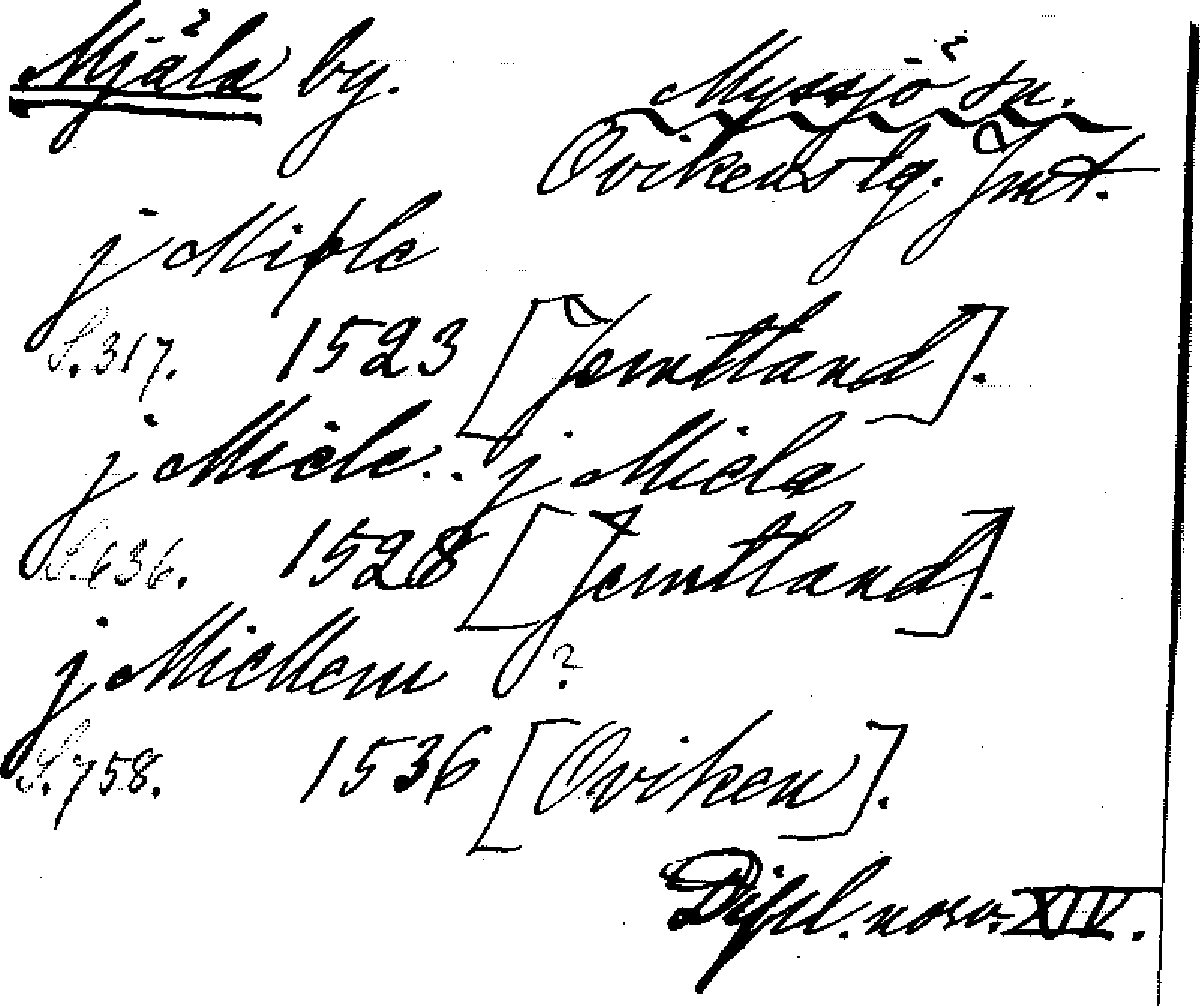 Mjåla by.
Myssjö sn.
Ovikens tg. Jmt.
j Miøle
S. 317. 1523 [Jemtland].
j Miöle.. j Miela
S. 636. 1528 [Jemtland].
j Miellem ?
S. 758. 1536 [Oviken].
Dipl. norv. XIV.